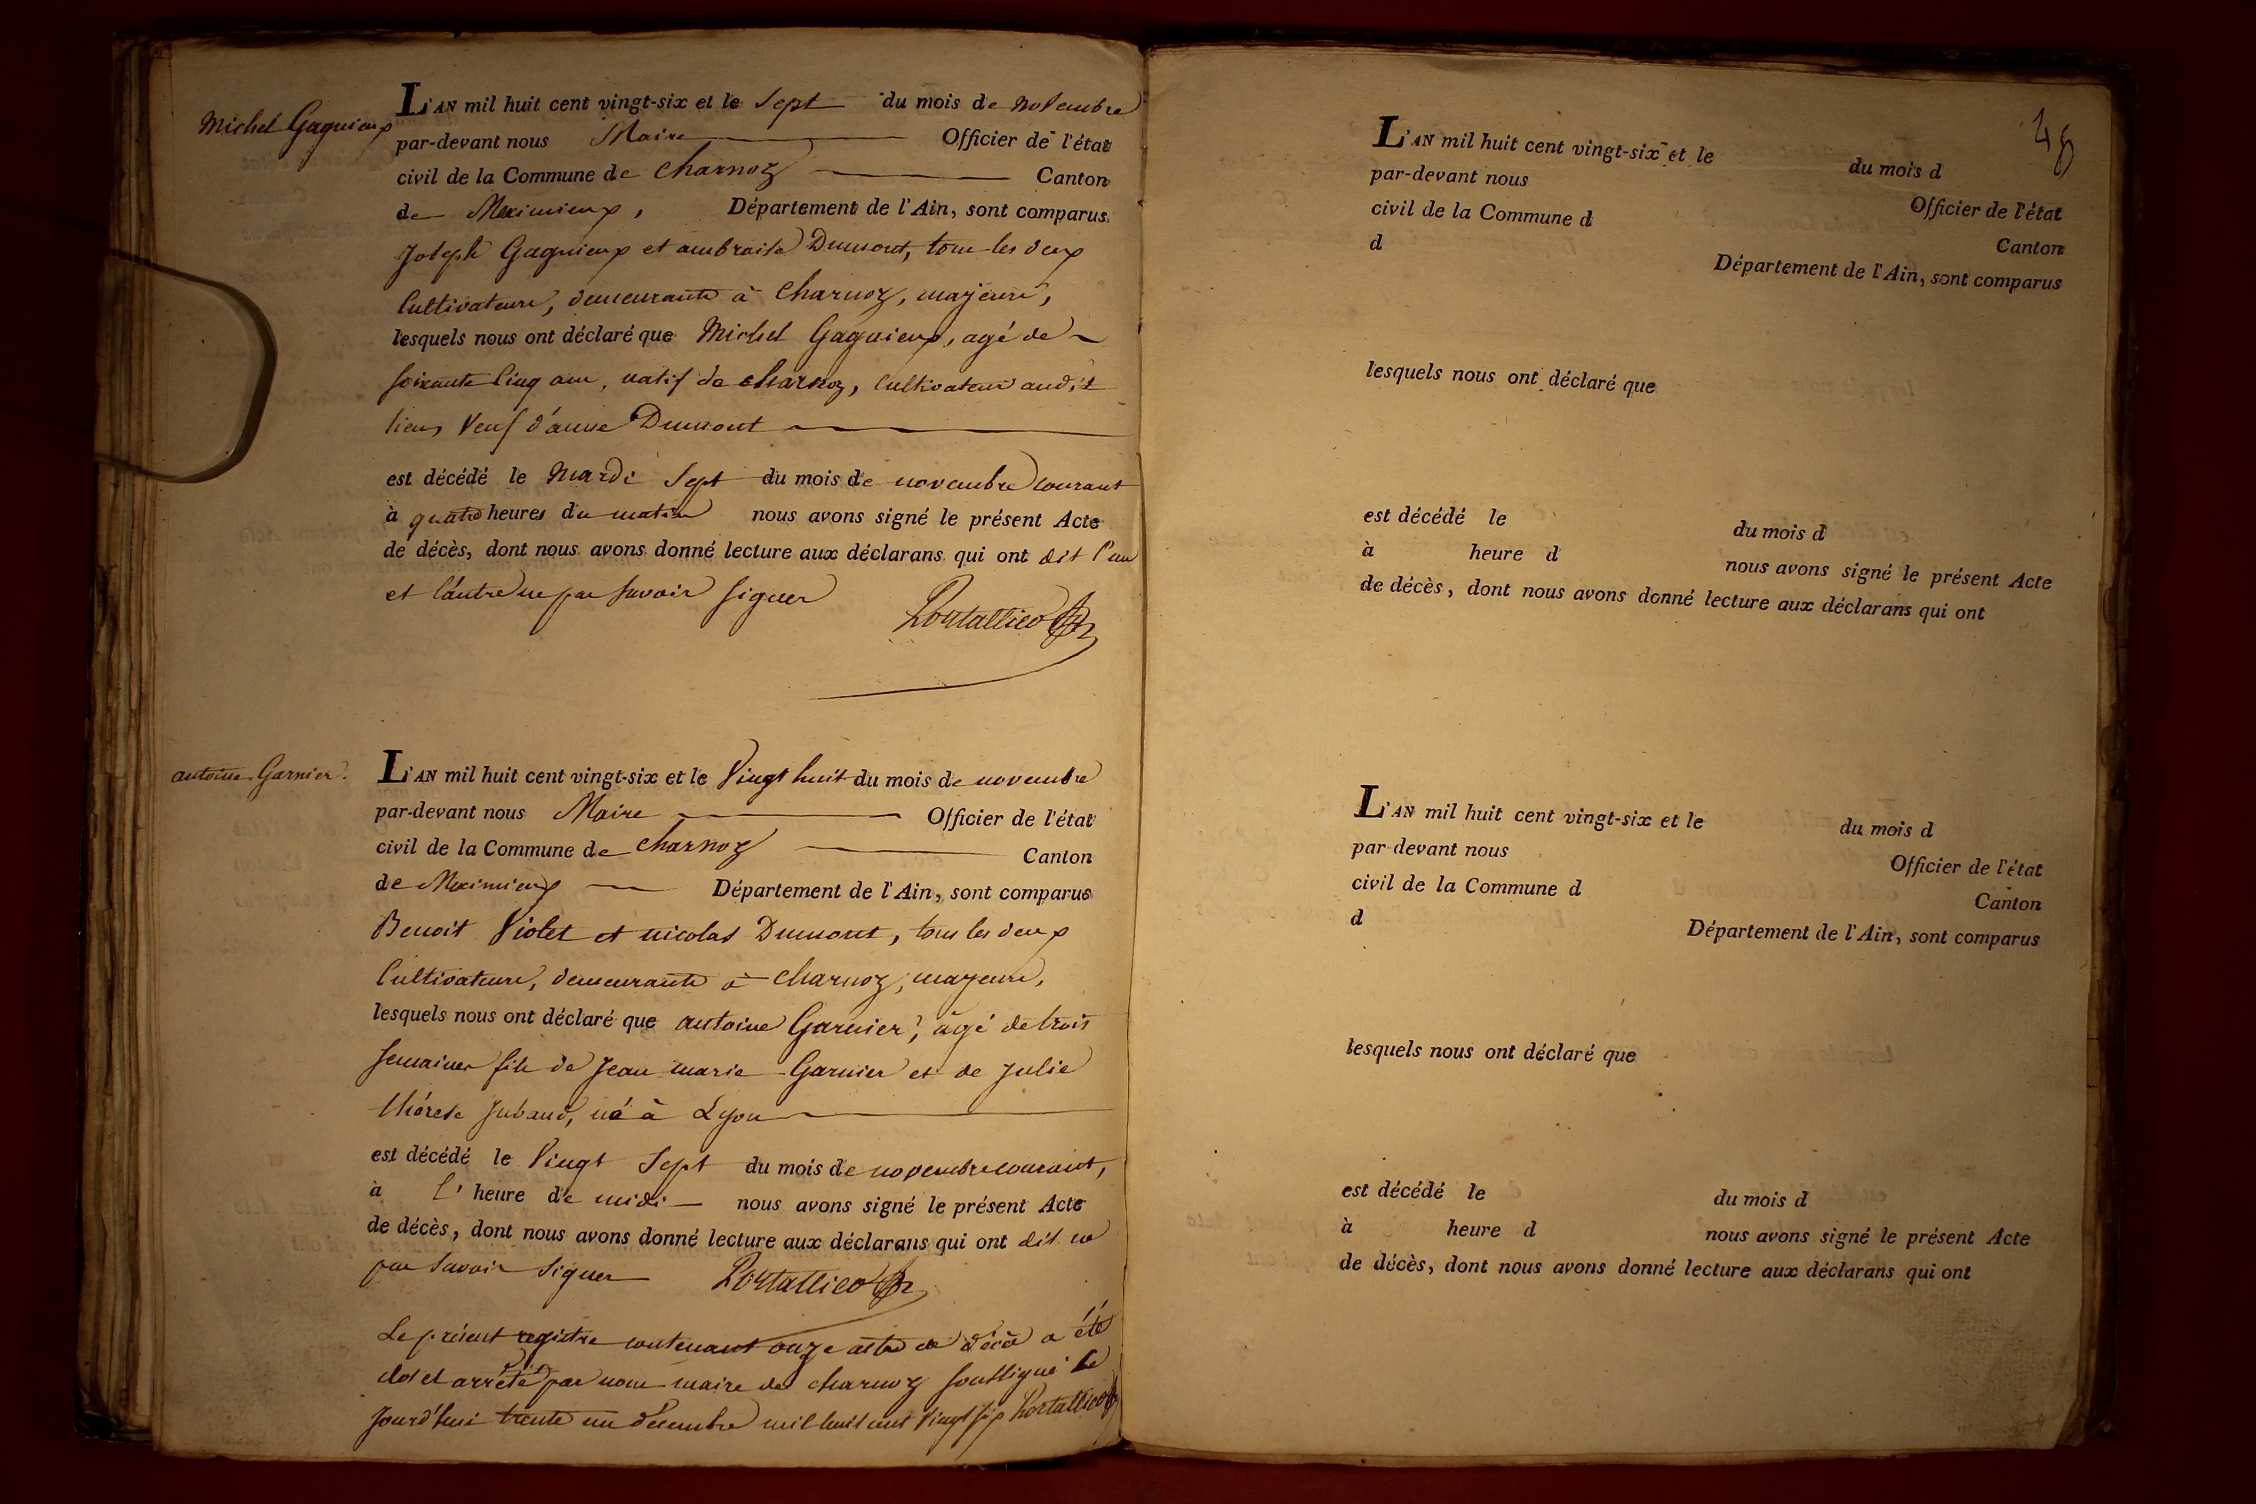 Michel Gagnieux
L'AN mil huit cent vingt-six et le Sept du mois de Novembre
par-devant nous Maire Officier de l'état
civil de la Commune de Charnoz Canton
de Meximieux, Département de l'Ain, sont comparus
Joseph Gagnieux et ambroise Dumont, tous les deux
Cultivateurs, demeurants à Charnoz, majeurs,
lesquels nous ont déclaré que Michel Gagnieux, agé de
soixante cinq ans, natif de Charnoz, Cultivateur audit
lieu, Veuf d'anne Dumont
est décédé le Mardi Sept du mois de novembre courant
à quatre heures du matin nous avons signé le présent Acte
de décès, dont nous avons donné lecture aux déclarans qui ont dit l'un
et l'autre ne pas savoir signer
Portallier
antoine Garnier.
L'AN mil huit cent vingt-six et le Vingt huit du mois de novembre
par-devant nous Maire Officier de l'état
civil de la Commune de Charnoz Canton
de Meximieux Département de l'Ain, sont comparus
Benoit Violet et nicolas Dumont, tous les deux
Cultivateurs, demeurants à Charnoz, majeurs,
lesquels nous ont déclaré que antoine Garnier, âgé de trois
semaines fils de Jean marie Garnier et de Julie
thérese Jubaud, né à Lyon
est décédé le Vingt Sept du mois de novembre courant,
à l' heure de midi nous avons signé le présent Acte
de décès, dont nous avons donné lecture aux déclarans qui ont dit ne
pas savoir signer Portallier
Le présent registre contenant onze actes de décès a été
clos et arrêté par nous maire de Charnoz soussigné le
jourd'hui trente un décembre mil huit cent vingt six Portallier
48
L'AN mil huit cent vingt-six et le du mois d
par-devant nous Officier de l'état
civil de la Commune d Canton
d Département de l'Ain, sont comparus
lesquels nous ont déclaré que
est décédé le du mois d
à heure d nous avons signé le présent Acte
de décès, dont nous avons donné lecture aux déclarans qui ont
L'AN mil huit cent vingt-six et le du mois d
par-devant nous Officier de l'état
civil de la Commune d Canton
d Département de l'Ain, sont comparus
lesquels nous ont déclaré que
est décédé le du mois d
à heure d nous avons signé le présent Acte
de décès, dont nous avons donné lecture aux déclarans qui ont